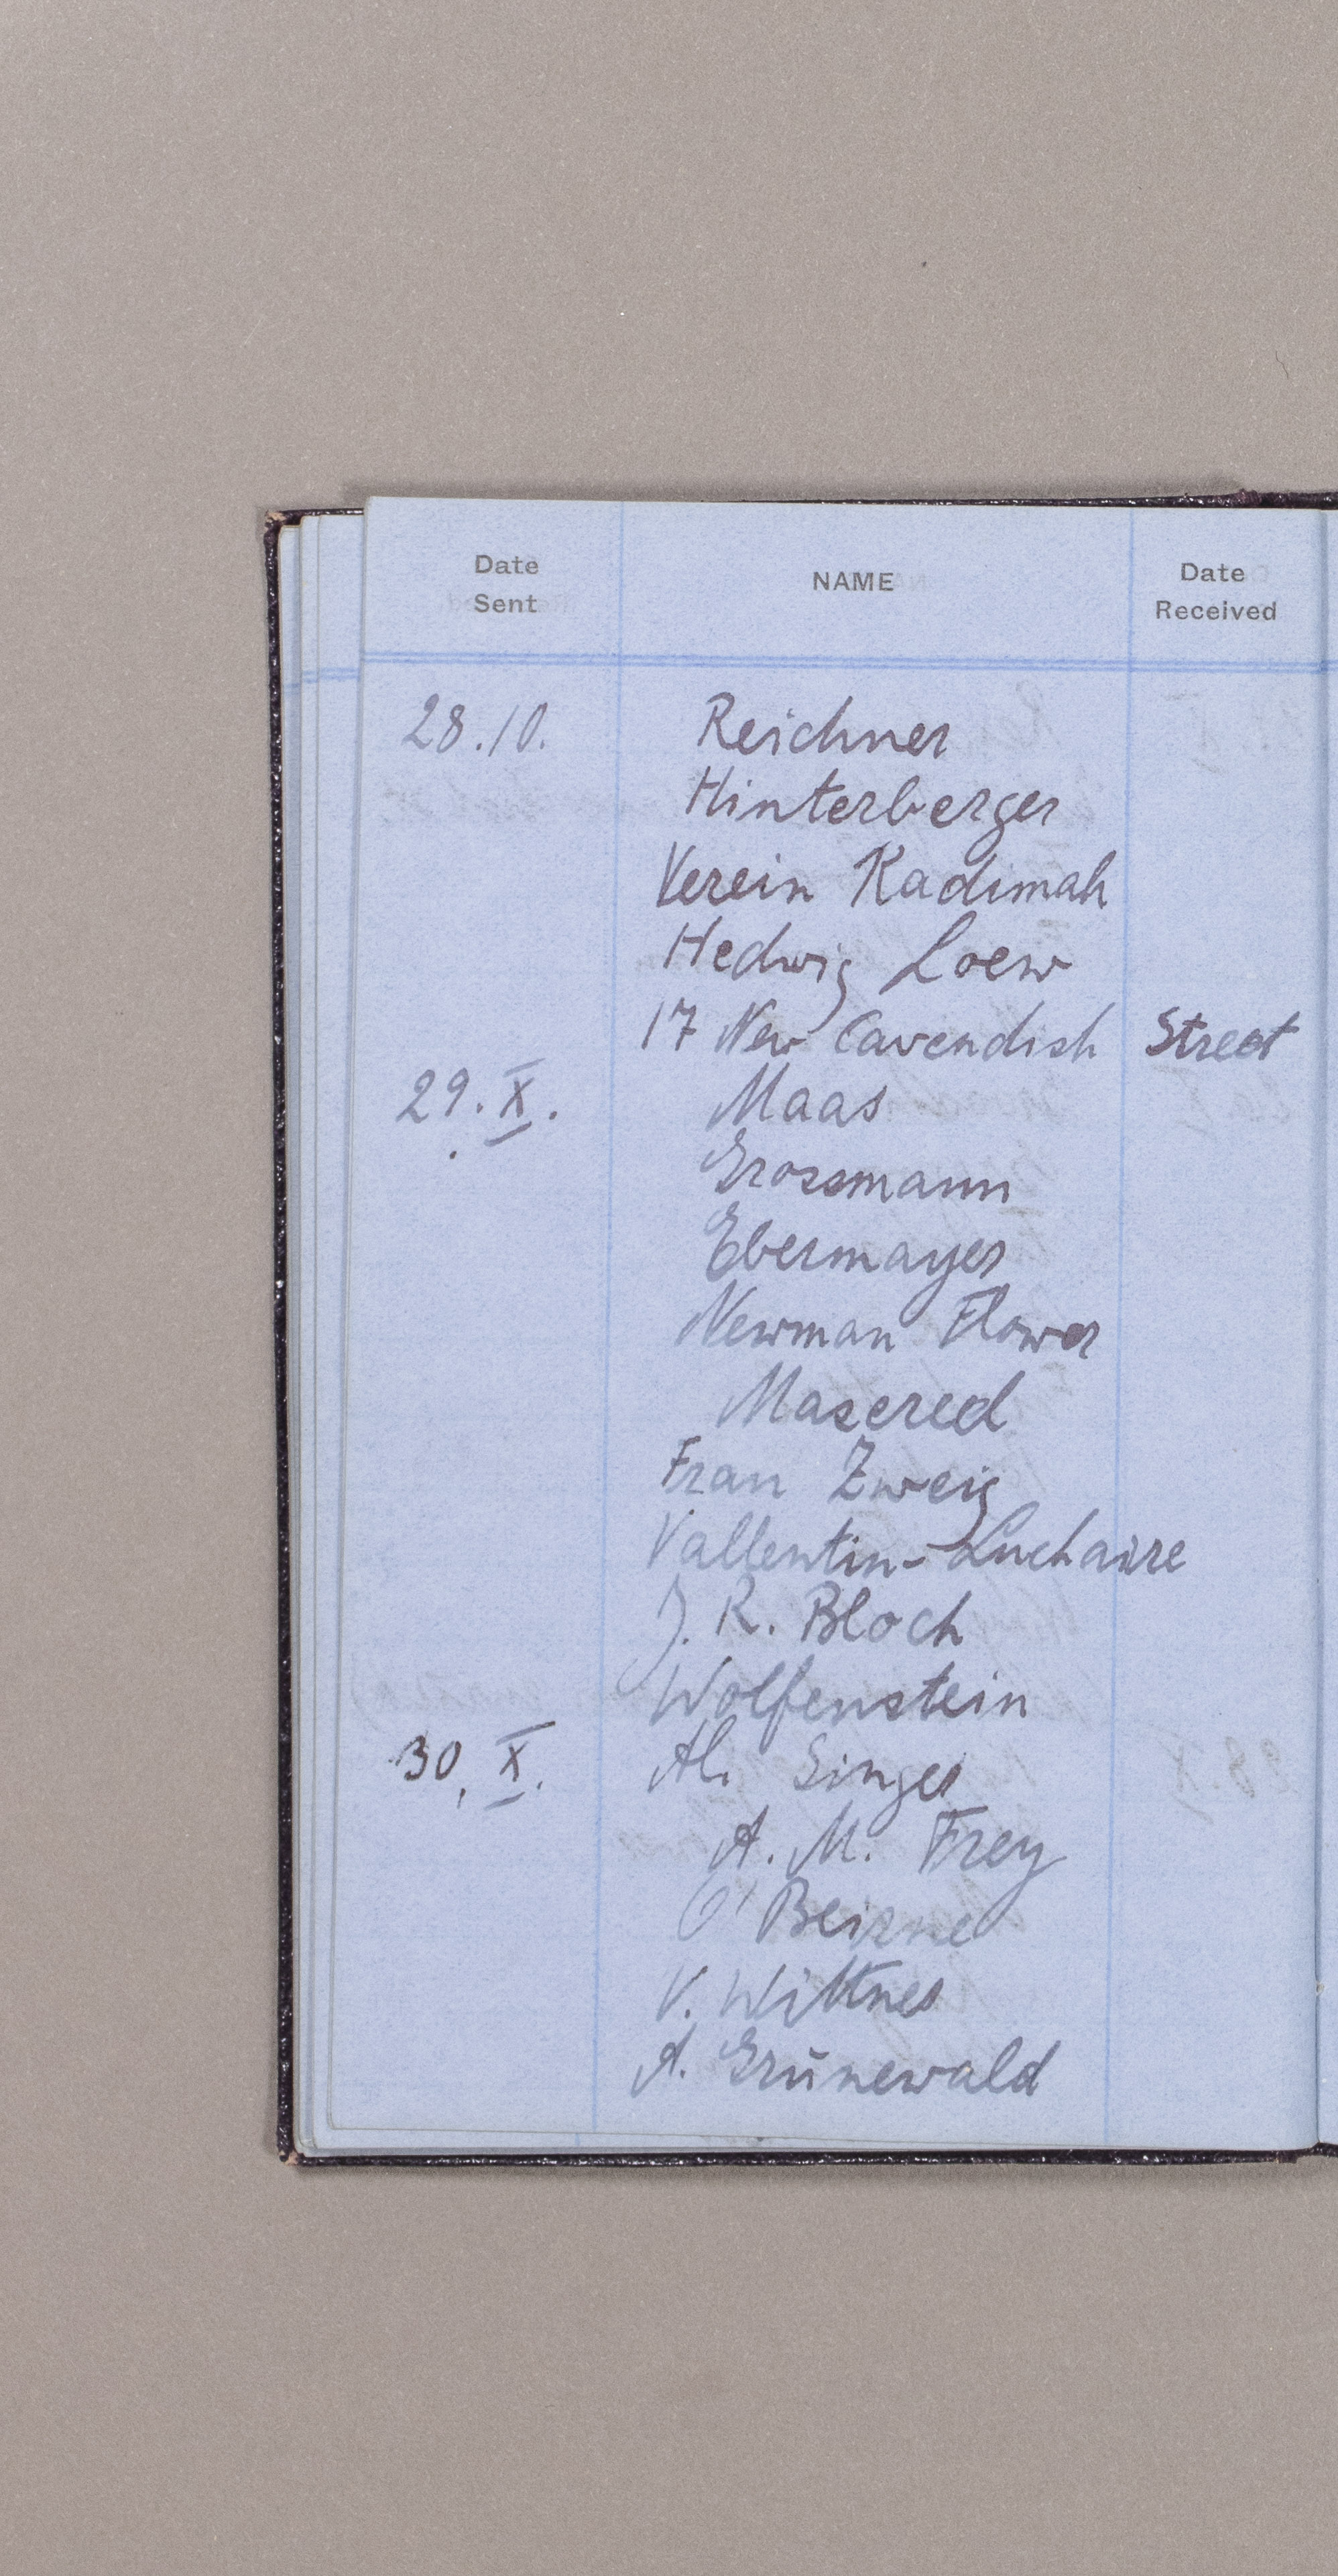 Date Sent NAME Date Received
28.10. Reichner
Hinterberger
Verein Kadimah
Hedwig Loew
17 New Cavendish Street
29.X. Maas
Grossmann
Ebermayer
Newman Flower
Masereel
Frau Zweig
Vallentin-Luchaire
J. R. Bloch
Wolfenstein
30.X. Al. Singer
A. M. Frey
O'Beirne
V. Wittner
A. Grünewald